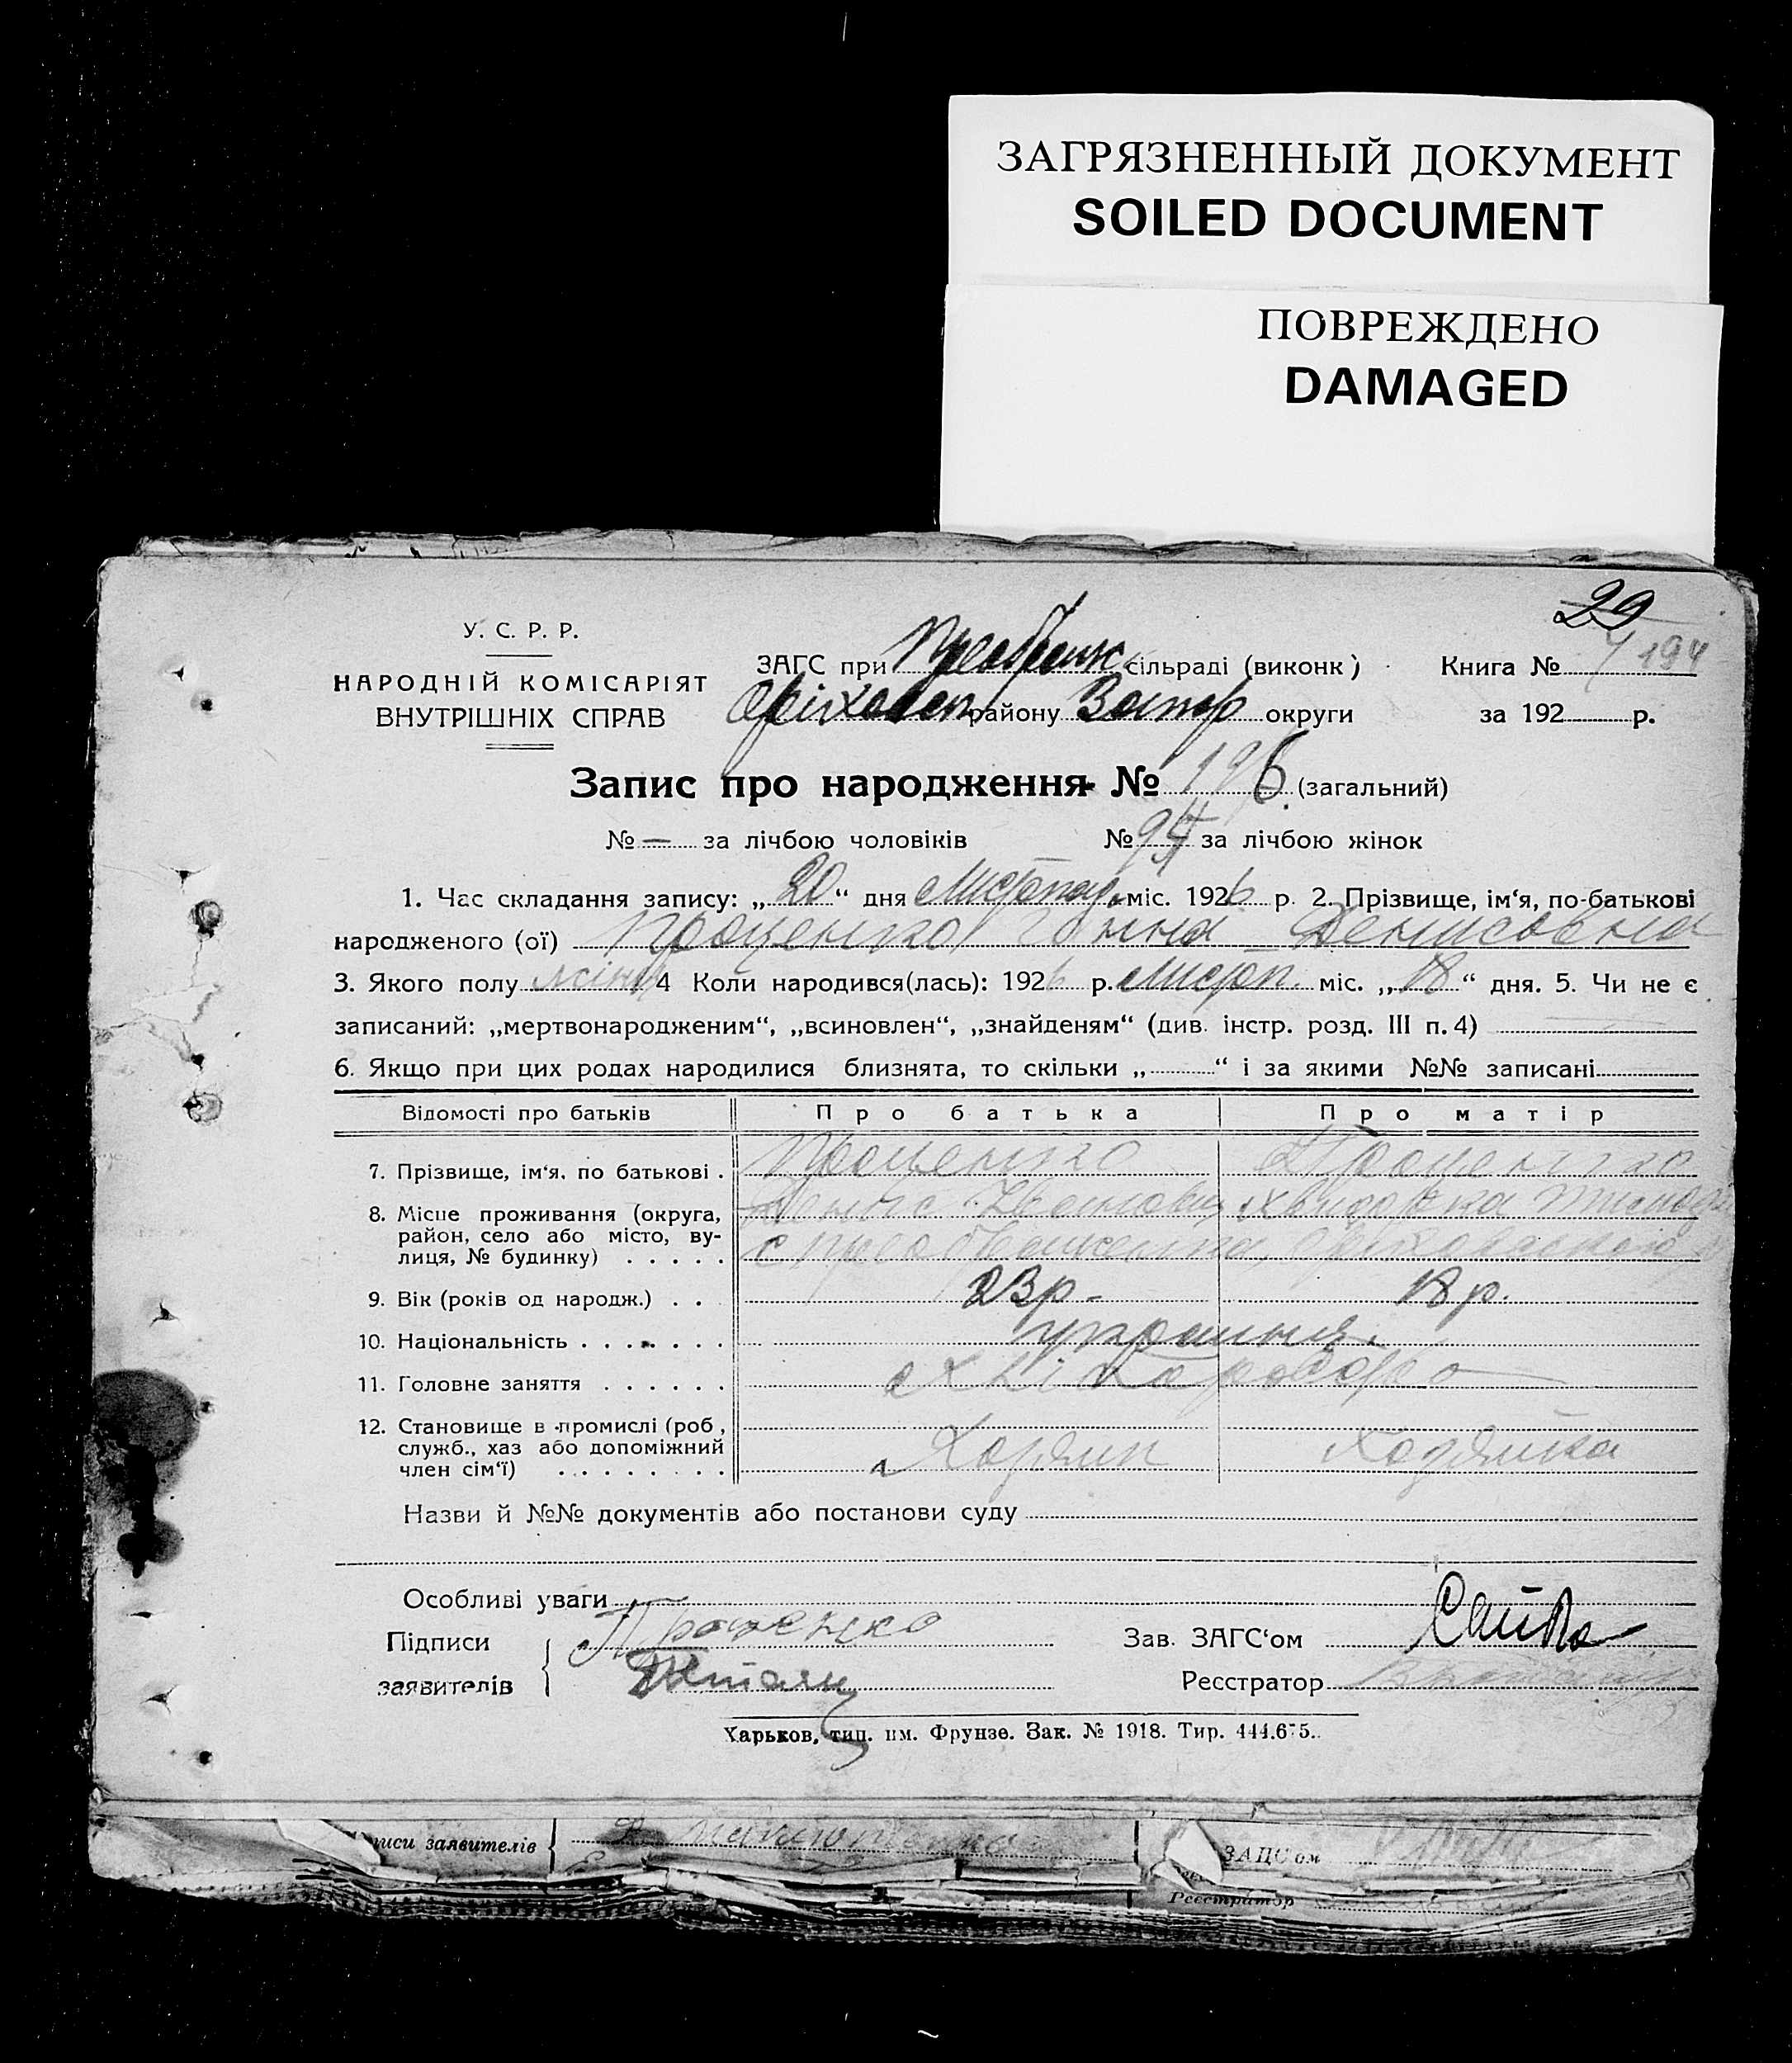 ЗАГРЯЗНЕННЫЙ ДОКУМЕНТ
SOILED DOCUMENT
ПОВРЕЖДЕНО
DAMAGED
29
У. С. Р. Р.
НАРОДНІЙ КОМІСАРІЯТ
ВНУТРІШНІХ СПРАВ
ЗАГС при Преображ сільраді (виконк) Книга № 194
Оріховсп району Запор округи за 192 р.
Запис про народження № 196 (загальний)
№ — за лічбою чоловіків № 94 за лічбою жінок
1. Час складання запису: „20“ дня Листопад міс. 1926 р. 2. Прізвище, ім‘я, по-батькові
народженого (ої) Проценко Ганна Денисовна
3. Якого полу жіноч 4 Коли народився(лась): 1926 р. Листоп. міс. „18“ дня. 5. Чи не є
записаний: „мертвонародженим“, „всиновлен“, „знайденям“ (див. інстр. розд. III п. 4)
6. Якщо при цих родах народилися близнята, то скільки „ “ і за якими №№ записані
Відомості про батьків Про батька Про матір
7. Прізвище, ім‘я, по батькові . Проценко Проценко
8. Місце проживання (округа, Денис Іванович
район, село або місто, ву-
лиця, № будинку) . . . . . с Преображенка,
9. Вік (років од народж.) . . 23 р - 18 р.
10. Національність . . . . . . . україння.
11. Головне заняття . . . . . . Хліборобство
12. Становище в промислі (роб,
служб., хаз або допоміжний
член сім‘ї) . . . . . . . . Хозяин Хозяйка
Назви й №№ документів або постанови суду
Особливі уваги
Підписи Проценко Зав. ЗАГС‘ом
заявителів Реєстратор
Харьков, тип. им. Фрунзе. Зак. № 1918. Тир. 444.675.
иси заявителів ЗАЦС‘ом
Реєстратор